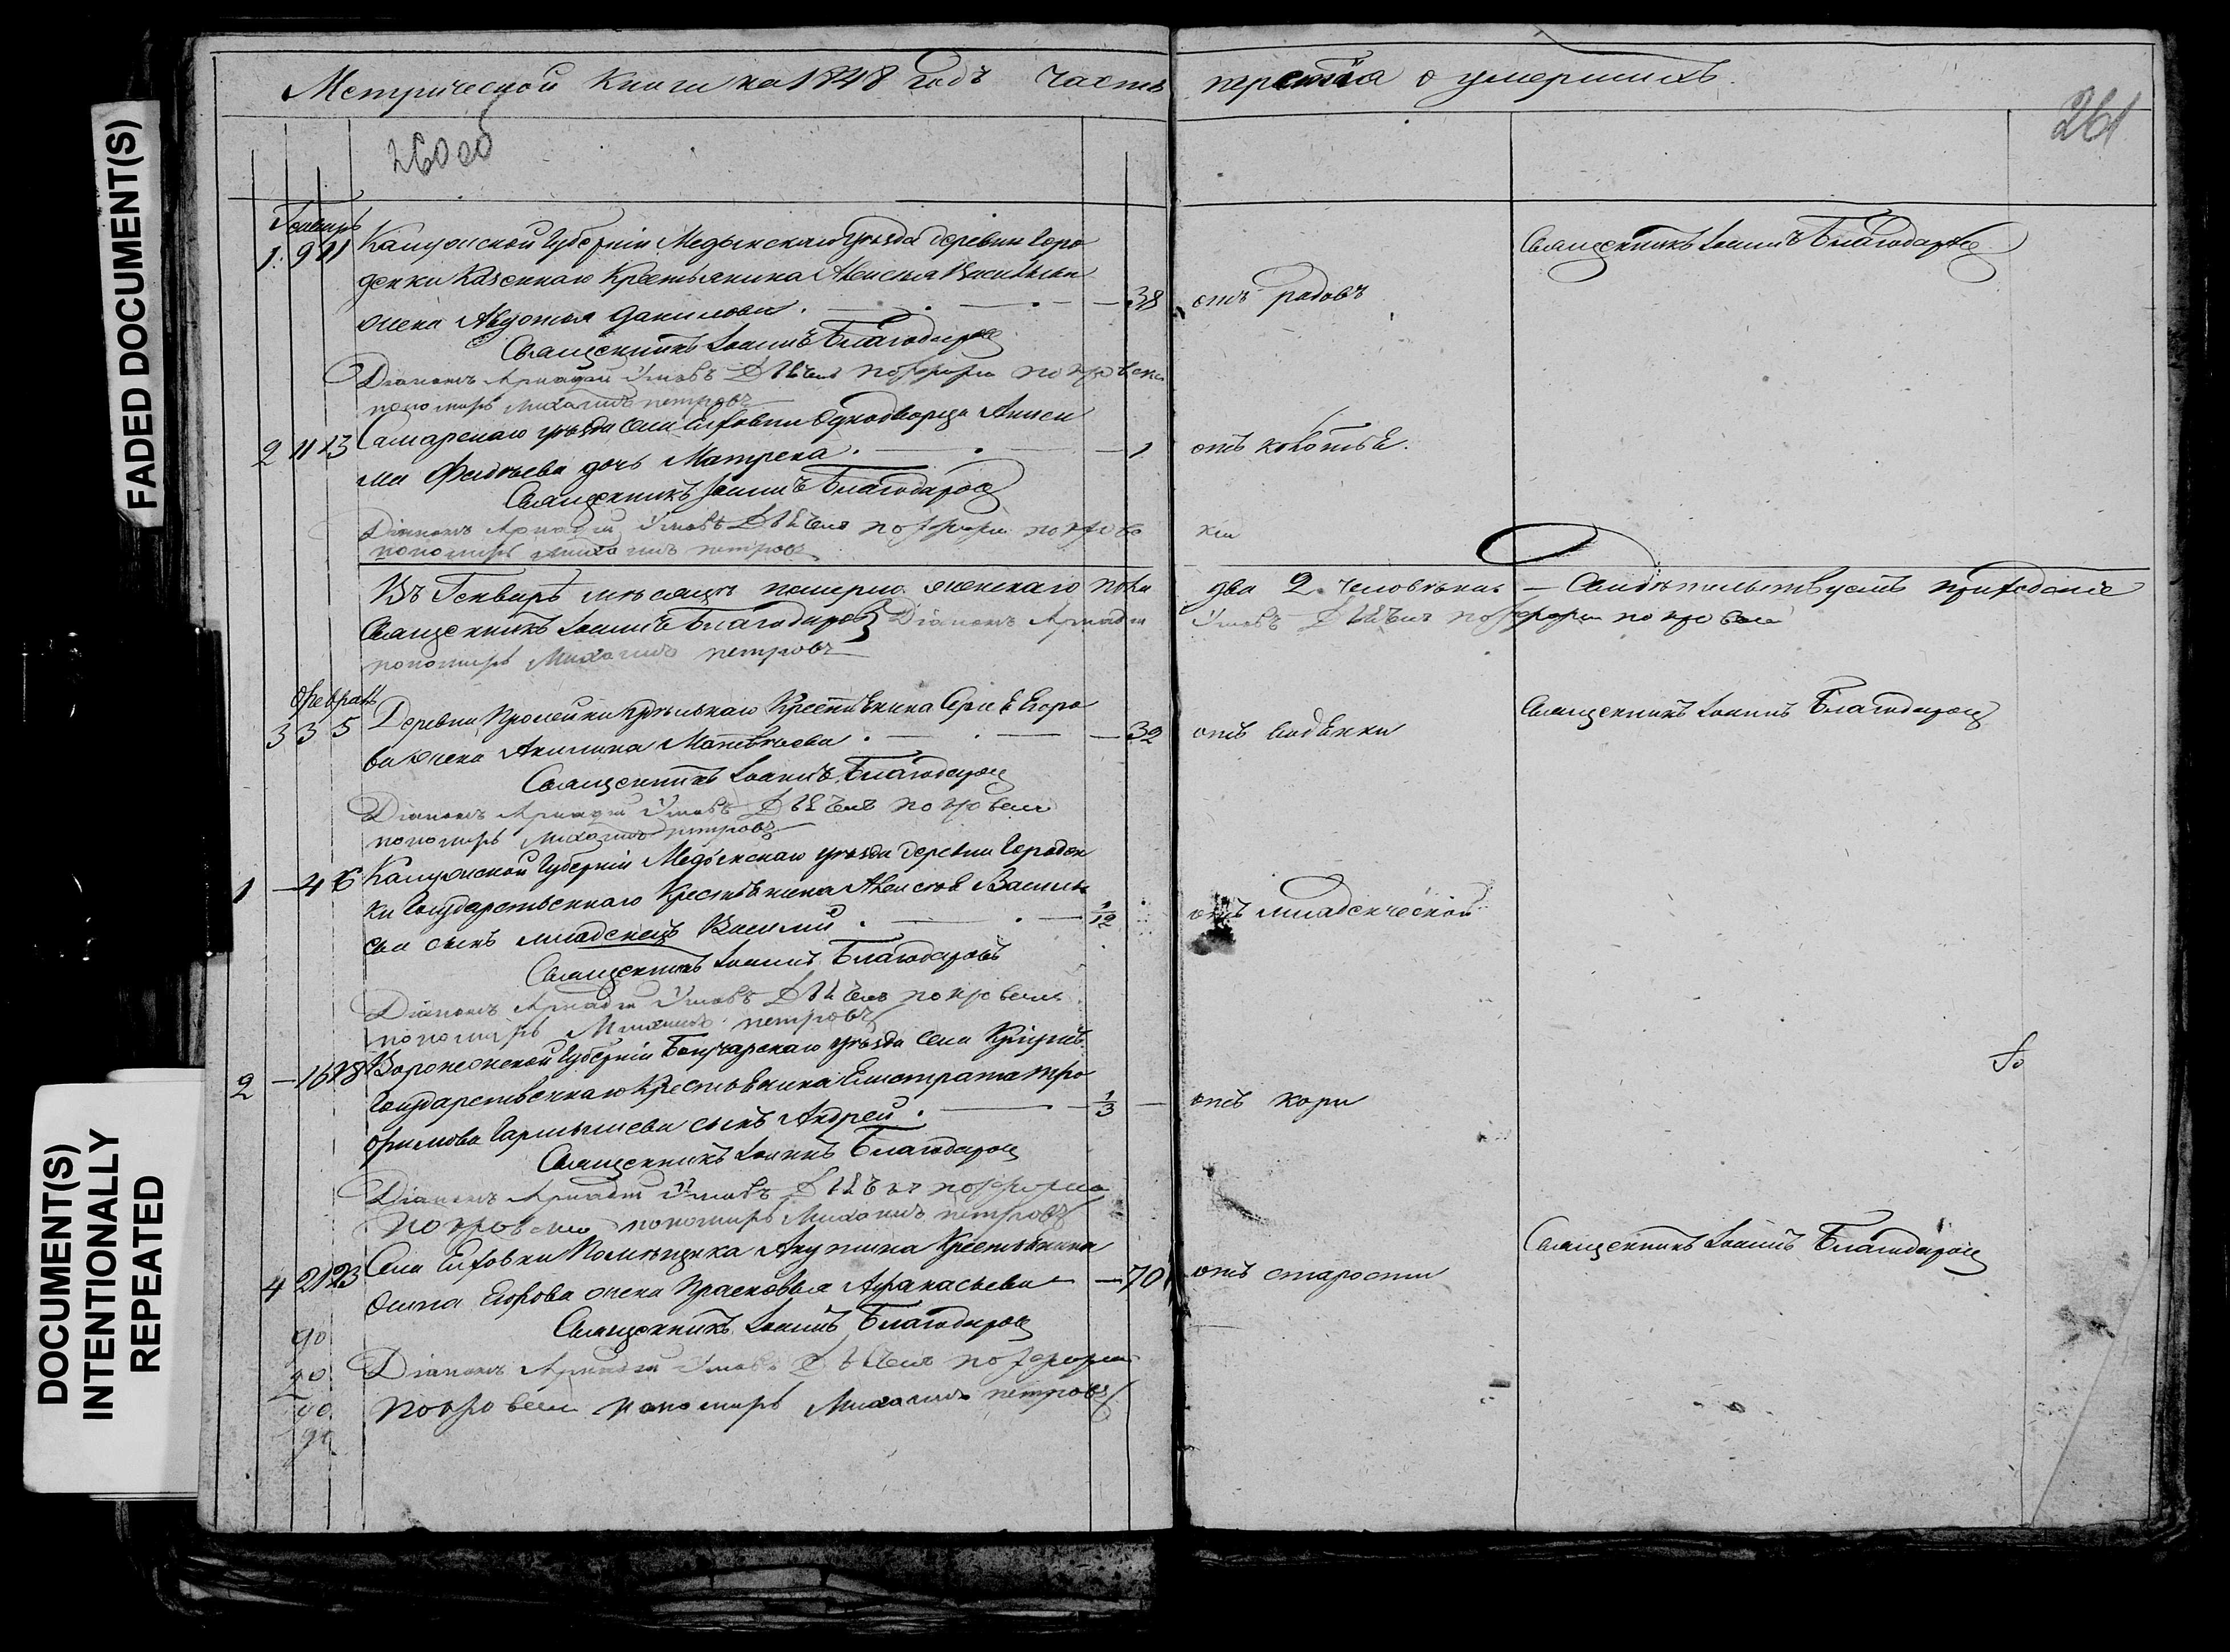 FADED DOCUMENT(S)
DOCUMENT(S)
INTENTIONALLY
REPEATED
Метрической Книги на 1848 годъ Часть третiя о умершихъ.
260 об
261
Генварь
1. 9 11 Калужской Губернiи Медынскаго уѣзда деревни Горо
денки Казеннаго Крестьянина Алексѣя Васильева
жена Авдотья Данилова. 38 отъ родовъ
Священникъ Іоаннъ Благодаровъ
Священникъ Іоаннъ Благодаровъ
Дiаконъ Аркадiй Умовъ Дьячекъ Порфирiй Покровскiй
пономарь Михаилъ петровъ
2 11 13 Самарскаго уѣзда села Елховки Однодворца Аниси
ма Фадѣева дочь Матрена. 1 отъ колотья.
Священникъ Іоаннъ Благодаровъ
Дiаконъ Аркадiй Умовъ Дьячекъ порфирiй покровскiй
пономарь Михаилъ петровъ
Въ Генварѣ мѣсяцѣ померло женскаго пола два 2 человѣка — Свидѣтельствуетъ приходскiе
Священникъ Іоаннъ Благодаровъ Дiаконъ Аркадiй Умовъ Дьячекъ порфирiй покровскiй
пономарь Михаилъ петровъ
Февраль
3 3 5 Деревни Крестьянина Сергѣя Егоро
ва жена Акилина Матвѣева. 32 отъ водянки
Священникъ Іоаннъ Благодаровъ
Священникъ Іоаннъ Благодаровъ
Дiаконъ Аркадiй Умовъ Дьячекъ покровскiй
пономарь Михаилъ петровъ
1 — 4 6 Калужской Губернiи Медынскаго уѣзда деревни Городен
ки Государственнаго Крестьянина Алексѣя Василь
ева сынъ младенецъ Василiй. 1/12 отъ младенческой
Священникъ Іоаннъ Благодаровъ
Дiаконъ Аркадiй Умовъ Дьячекъ покровскiй
пономарь Михаилъ петровъ
2 — 16 18 Воронежской Губернiи Богучарскаго уѣзда села
Государственнаго Крестьянина Елистрата Тро
фимова сынъ Андрей. 1/3 — отъ кори
Священникъ Іоаннъ Благодаровъ
Дiаконъ Аркадiй Умовъ Дьячекъ порфирiй
покровскiй пономарь Михаилъ петровъ
4 21 23 Села Елховки Помѣщика Акутина Крестьянина
Осипа Егорова жена Прасковья Афанасьева — 70 отъ старости
Священникъ Іоаннъ Благодаровъ
Священникъ Іоаннъ Благодаровъ
Дiаконъ Аркадiй Умовъ Дьячекъ порфирiй
покровскiй пономарь Михаилъ петровъ